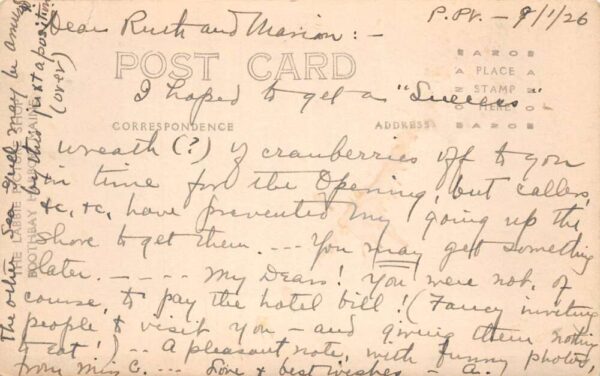 P. Pt. - 9/1/26
Dear Ruth and Marion: -
POST CARD
AZO
PLACE
STAMP
HERE
AZO
I hoped to get a "Success"
CORRESPONDENCE
ADDRESS
wreath (?) of cranberries off to you
in time for the Opening, but callers,
&c, &c, have prevented my going up the
shore to get them. --- You may get something
later. - - - - My Dears! You were not, of
course, to pay the hotel bill! (Fancy inviting
people to visit you - and giving them nothing
to eat!) --- A pleasant note, with funny photos,
from Miss C. --- Love & best wishes - A.
the other Sea Duel may be amused
by this juxtaposition!
(over)
SHOP
BOOTHBAY HARBOR, MAINE